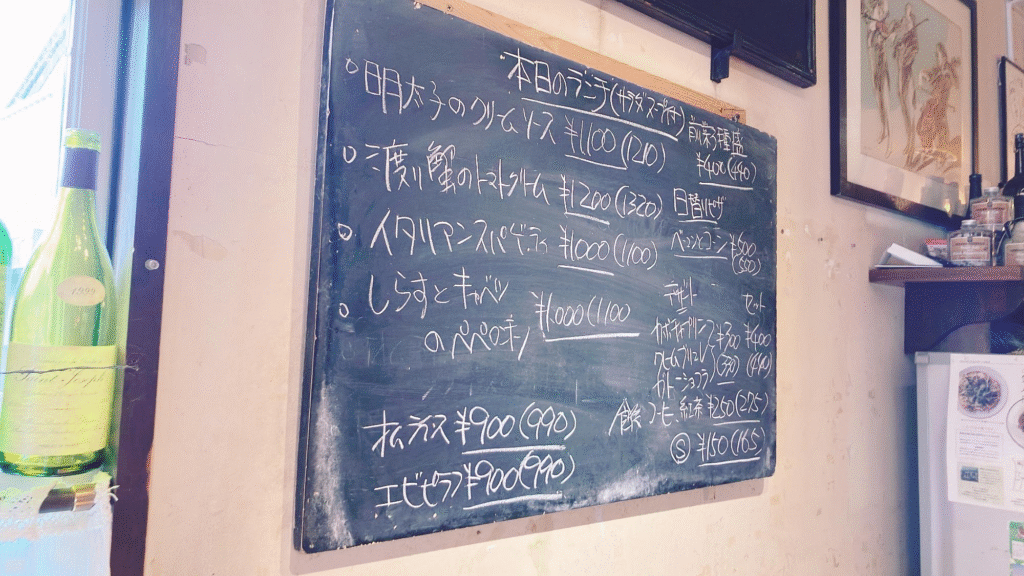 本日のランチ(サラダスープ付)
明太子のクリームソース ¥1100(1210)
渡り蟹のトマトクリーム ¥1200(1320)
イタリアンスパゲティ ¥1000(1100)
しらすとキャベツ
のペペロンチ ¥1000(1100
オムライス ¥900(990)
エビピラフ ¥900(990)
前菜3種盛
¥400(440)
日替りピザ
デザート セット
カボチャプリン ¥300 ¥400
クレームブリュレ (330) (440)
ガトーショコラ
コーヒー 紅茶 ¥250(275)
Ⓢ ¥150(165)